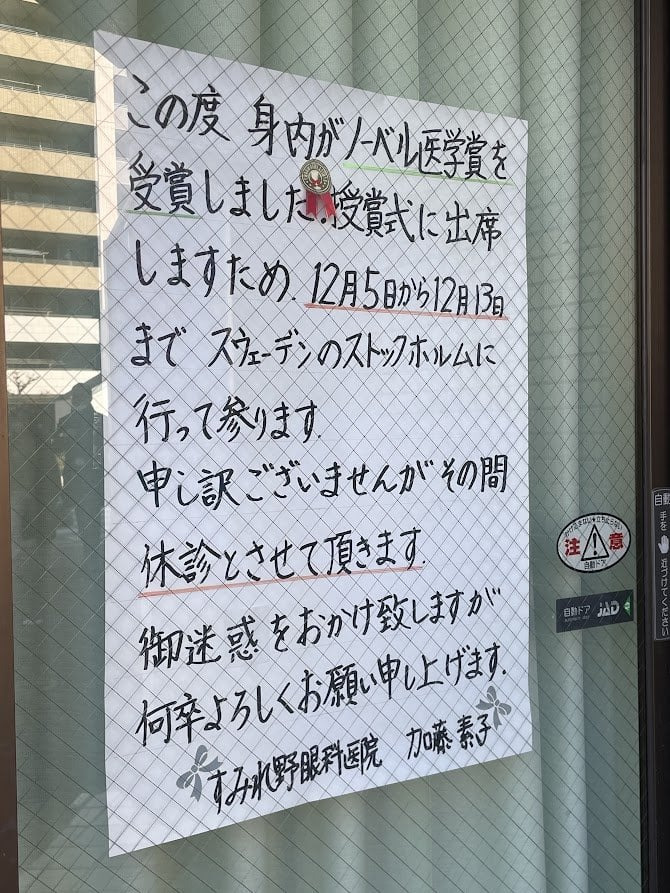 この度 身内がノーベル医学賞を
受賞しました.授賞式に出席
しますため. 12月5日から12月13日
まで スウェーデンのストックホルムに
行って参ります.
申し訳ございませんが その間
休診とさせて頂きます.
御迷惑をおかけ致しますが
何卒よろしくお願い申し上げます.
すみれ野眼科医院 加藤 素子
かけ込まない・立ち止らない
注 意
自動ドア
自動ドア JAD
自動
手を近づけてください